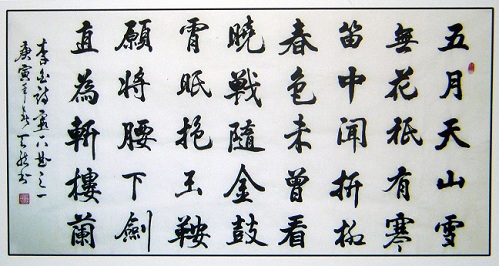 五月天山雪
無花祇有寒
笛中聞折柳
春色未曾看
曉戰隨金鼓
霄眠抱玉鞍
願將腰下劍
直為斬樓蘭
李白詩塞下曲之一
庚寅年